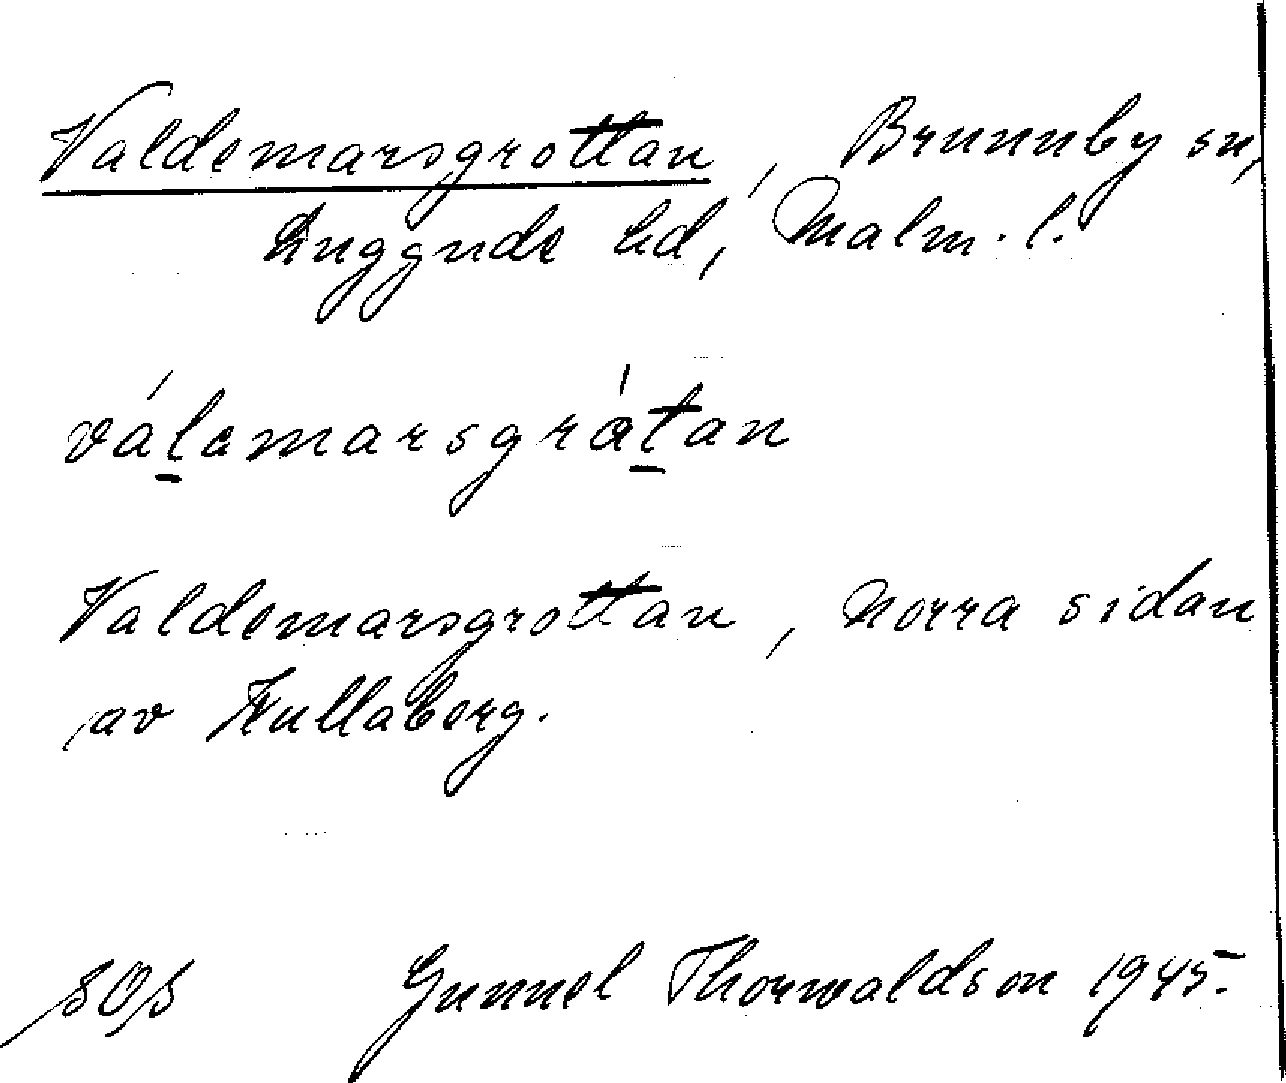 Valdemarsgrottan, Brunnby sn,
Luggude hd, Malm. l.
válamarsgråtan
Valdemarsgrottan, norra sidan
av Kullaberg.
Gunnel Thorwaldson 1945.